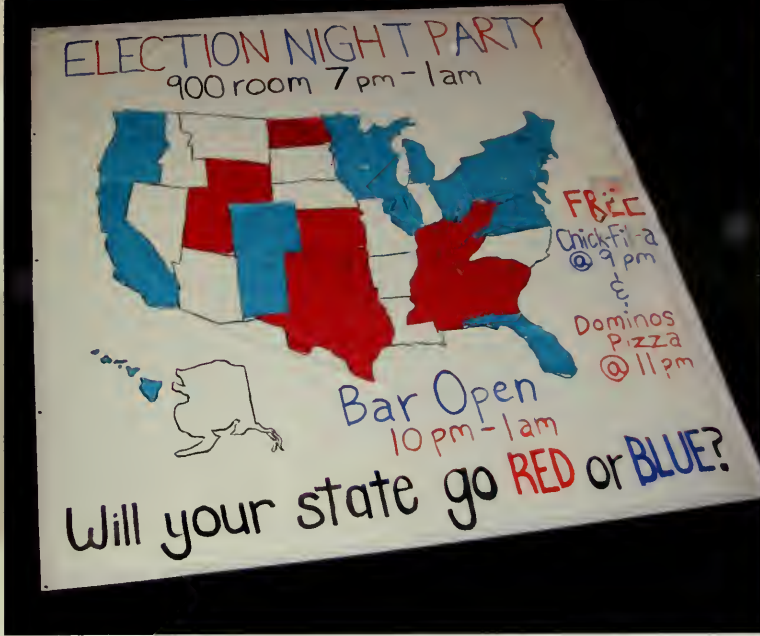 ELECTION NIGHT PARTY
900 room 7pm-1am
FREE
Chick-Fil-a
@ 9 pm
&
Dominos
Pizza
@ 11pm
Bar Open
10pm-1am
Will your state go RED or BLUE?